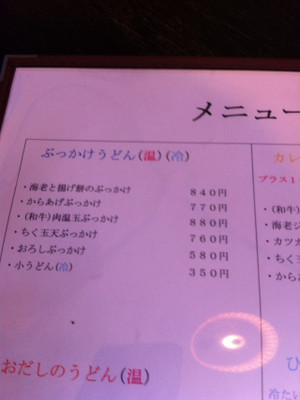 メニュー
ぶっかけうどん(温)(冷)
・海老と揚げ餅のぶっかけ 840円
・からあげぶっかけ 770円
・(和牛)肉温玉ぶっかけ 880円
・ちく玉天ぶっかけ 760円
・おろしぶっかけ 580円
・小うどん(冷) 350円
おだしのうどん(温)
カレ
プラス1
・(和牛)
・海老ジ
・カツカ
・ちく玉
・からあ
ひ
冷たい